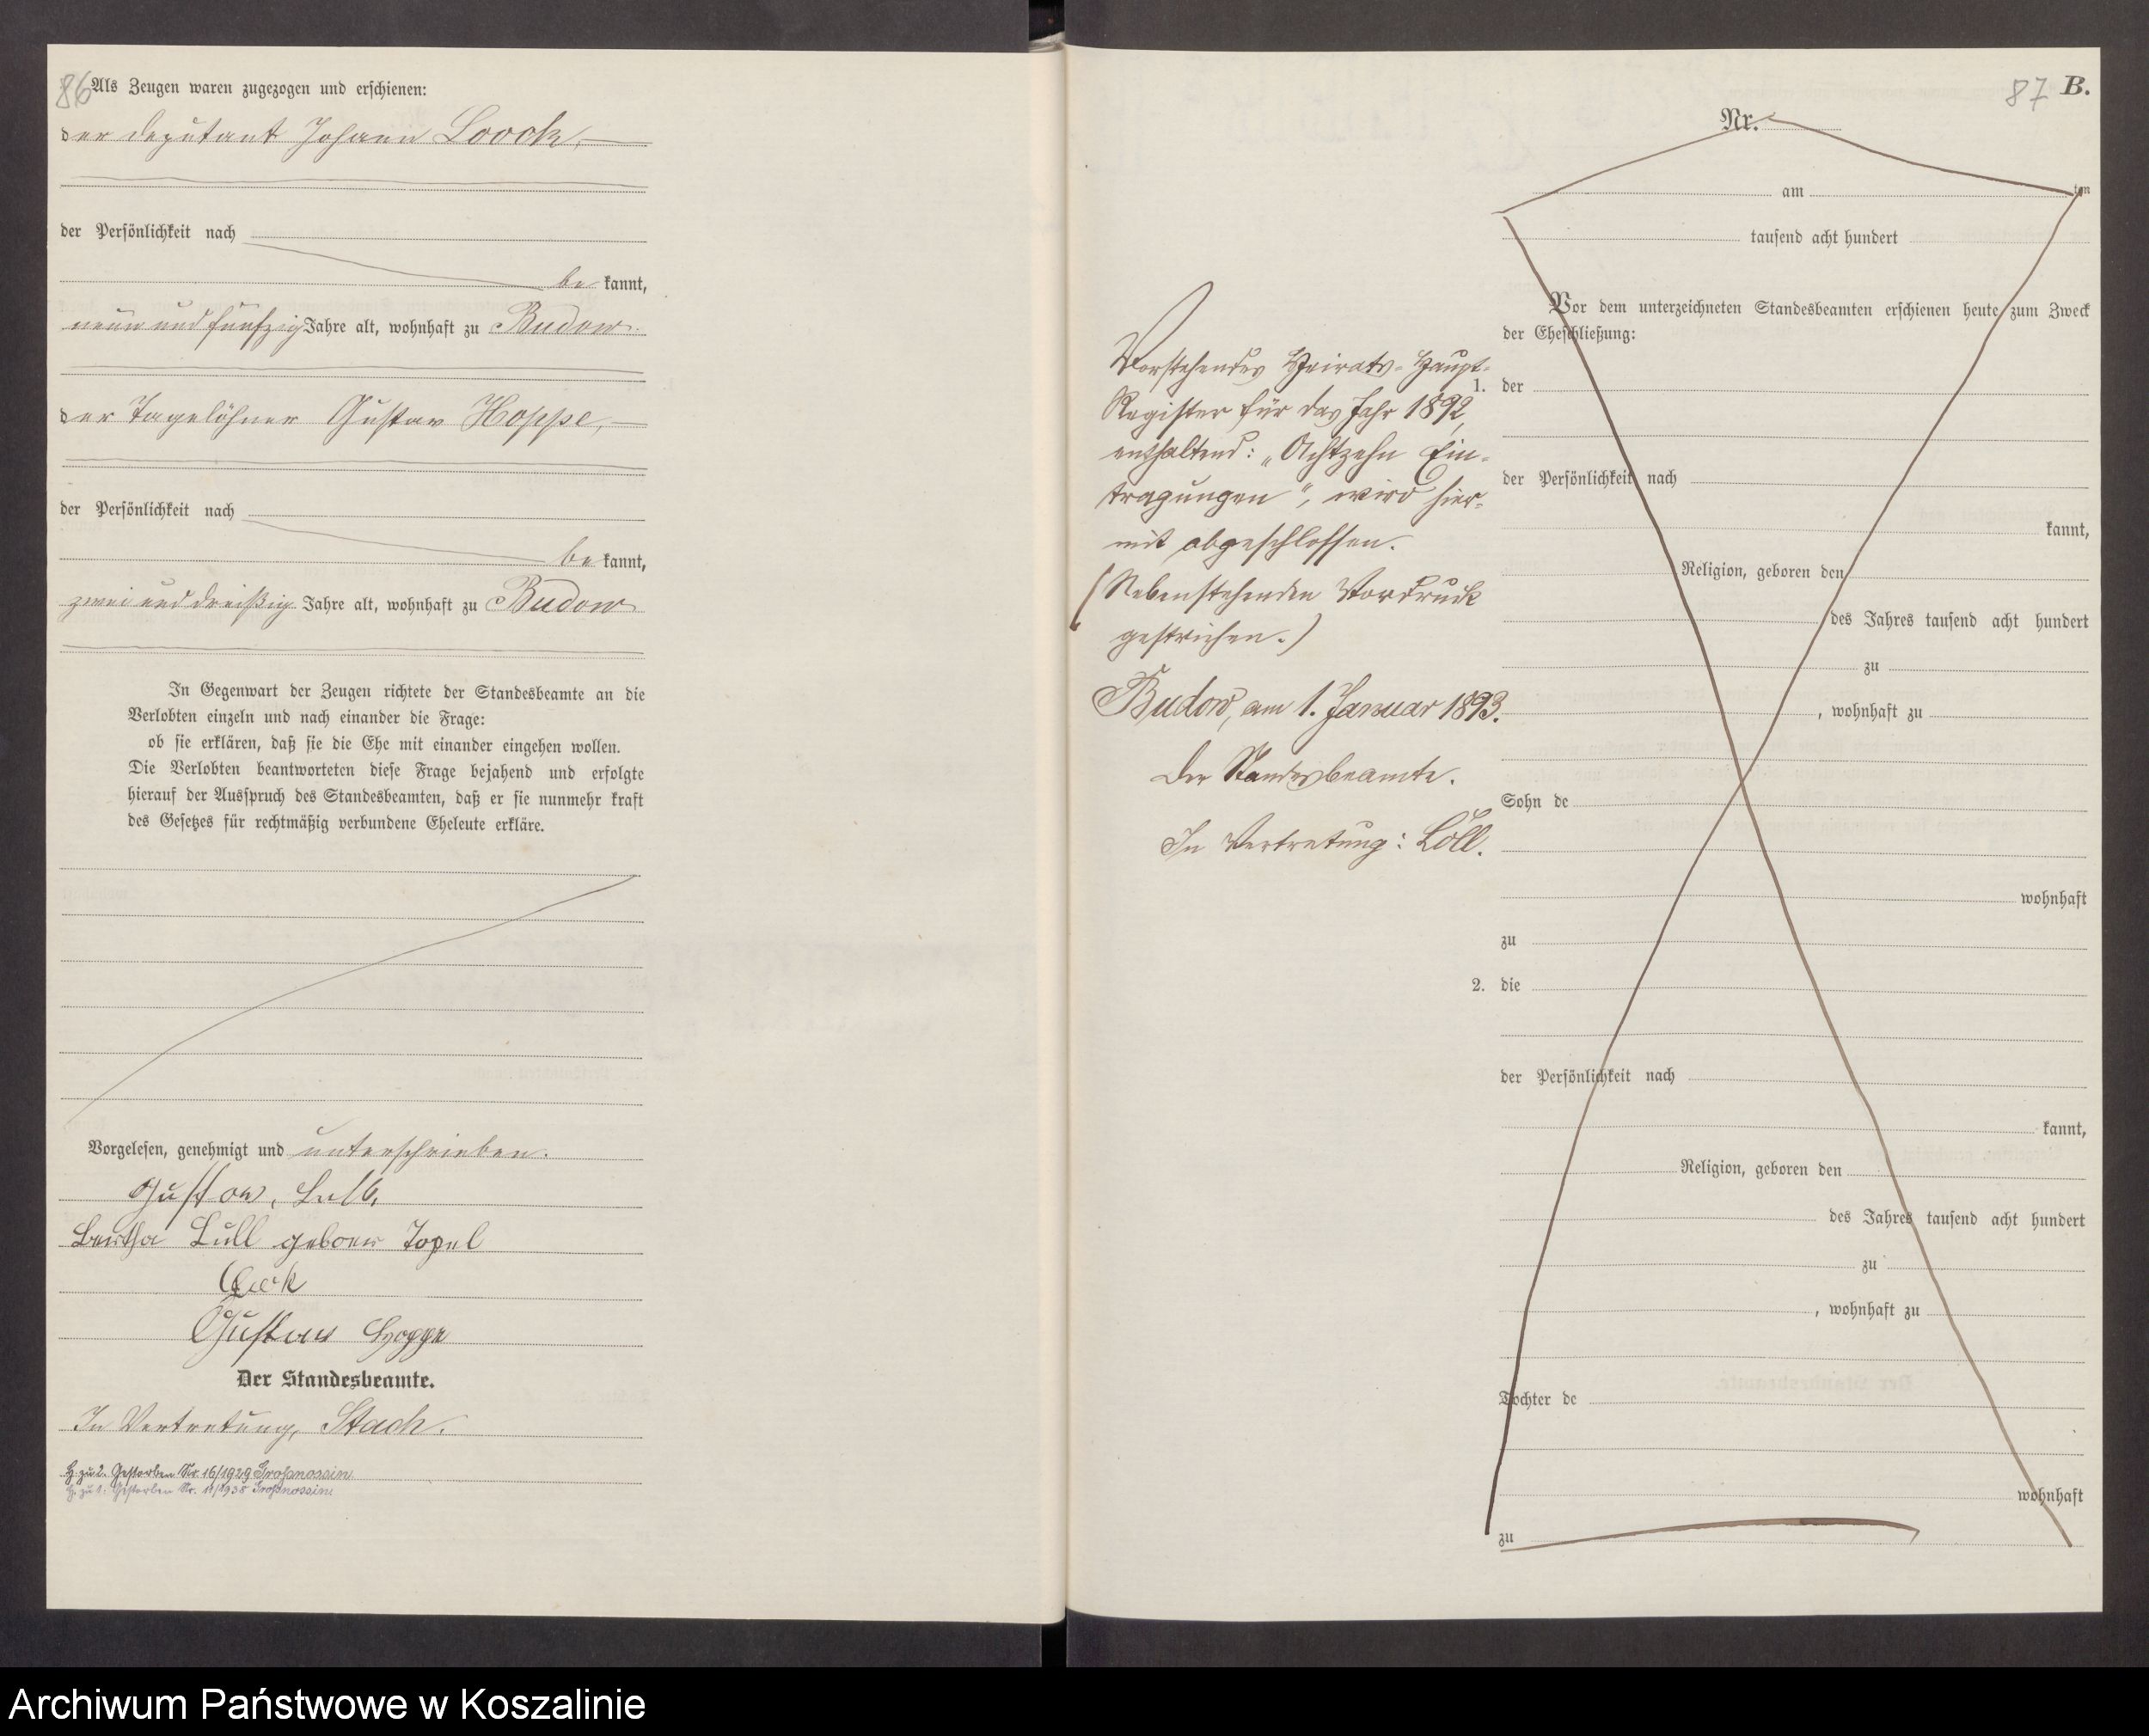 86
Als Zeugen waren zugezogen und erschienen:
der Deputant Johann Loock,
der Persönlichkeit nach
be kannt,
neun und fünfzig Jahre alt, wohnhaft zu Budow
der Tagelöhner Gustav Hoppe,
der Persönlichkeit nach
be kannt,
zwei und dreißig Jahre alt, wohnhaft zu Budow
In Gegenwart der Zeugen richtete der Standesbeamte an die
Verlobten einzeln und nach einander die Frage:
ob sie erklären, daß sie die Ehe mit einander eingehen wollen.
Die Verlobten beantworteten diese Frage bejahend und erfolgte
hierauf der Ausspruch des Standesbeamten, daß er sie nunmehr kraft
des Gesetzes für rechtmäßig verbundene Eheleute erkläre.
Vorgelesen, genehmigt und unterschrieben.
Gustav
Bertha Lüll geboren Topel
Gustav Hoppe
Der Standesbeamte.
In Vertretung, Stach.
H. zu 2. Gestorben Nr. 16/1929 Großnossin
H. zu 1: Gestorben Nr. 11/1938 Großnossin
87 B.
Nr.
am ten
tausend acht hundert
Vor dem unterzeichneten Standesbeamten erschienen heute zum Zweck
der Eheschließung:
1. der
der Persönlichkeit nach
kannt,
Religion, geboren den
des Jahres tausend acht hundert
zu
, wohnhaft zu
Sohn de
wohnhaft
zu
2. die
der Persönlichkeit nach
kannt,
Religion, geboren den
des Jahres tausend acht hundert
zu
, wohnhaft zu
Tochter de
wohnhaft
zu
Vorstehendes Heirats-Haupt-
Register für das Jahr 1892,
enthaltend: „Achtzehn Ein-
tragungen", wird hier-
mit abgeschlossen.
(Nebenstehenden Vordruck
gestrichen.)
Budow, am 1. Januar 1893.
Der Standesbeamte.
In Vertretung: Löll.
Archiwum Państwowe w Koszalinie